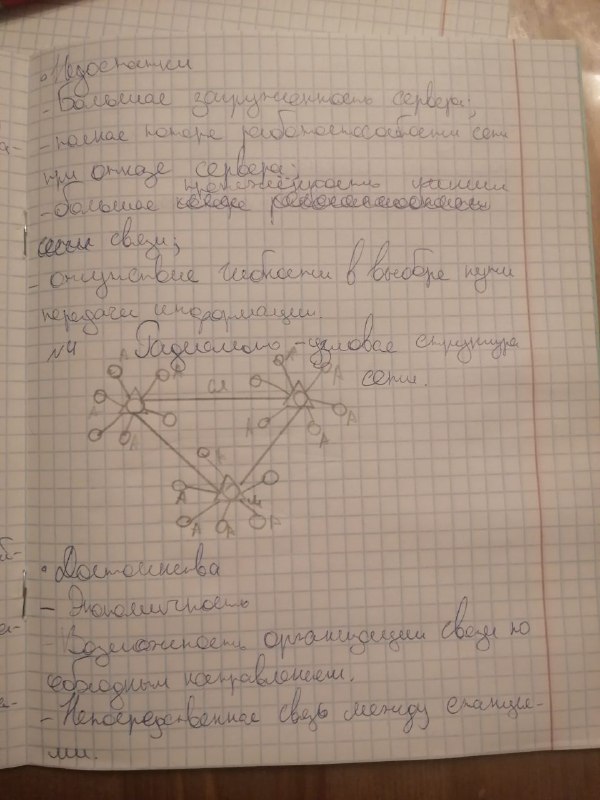 • Недостатки
- Большая загруженность сервера;
- полная потеря работоспособности сети
при отказе сервера;
протяжённость линии
- большая
связи;
- отсутствие гибкости в выборе пути
передачи информации.
№4 Радиально-узловая структура
сети.
А А А А
СЛ
А А А А
А А
А А А
• Достоинства
- Экономичность
- Возможность организации связи по
обходным направлениям.
- Непосредственная связь между станция-
ми.